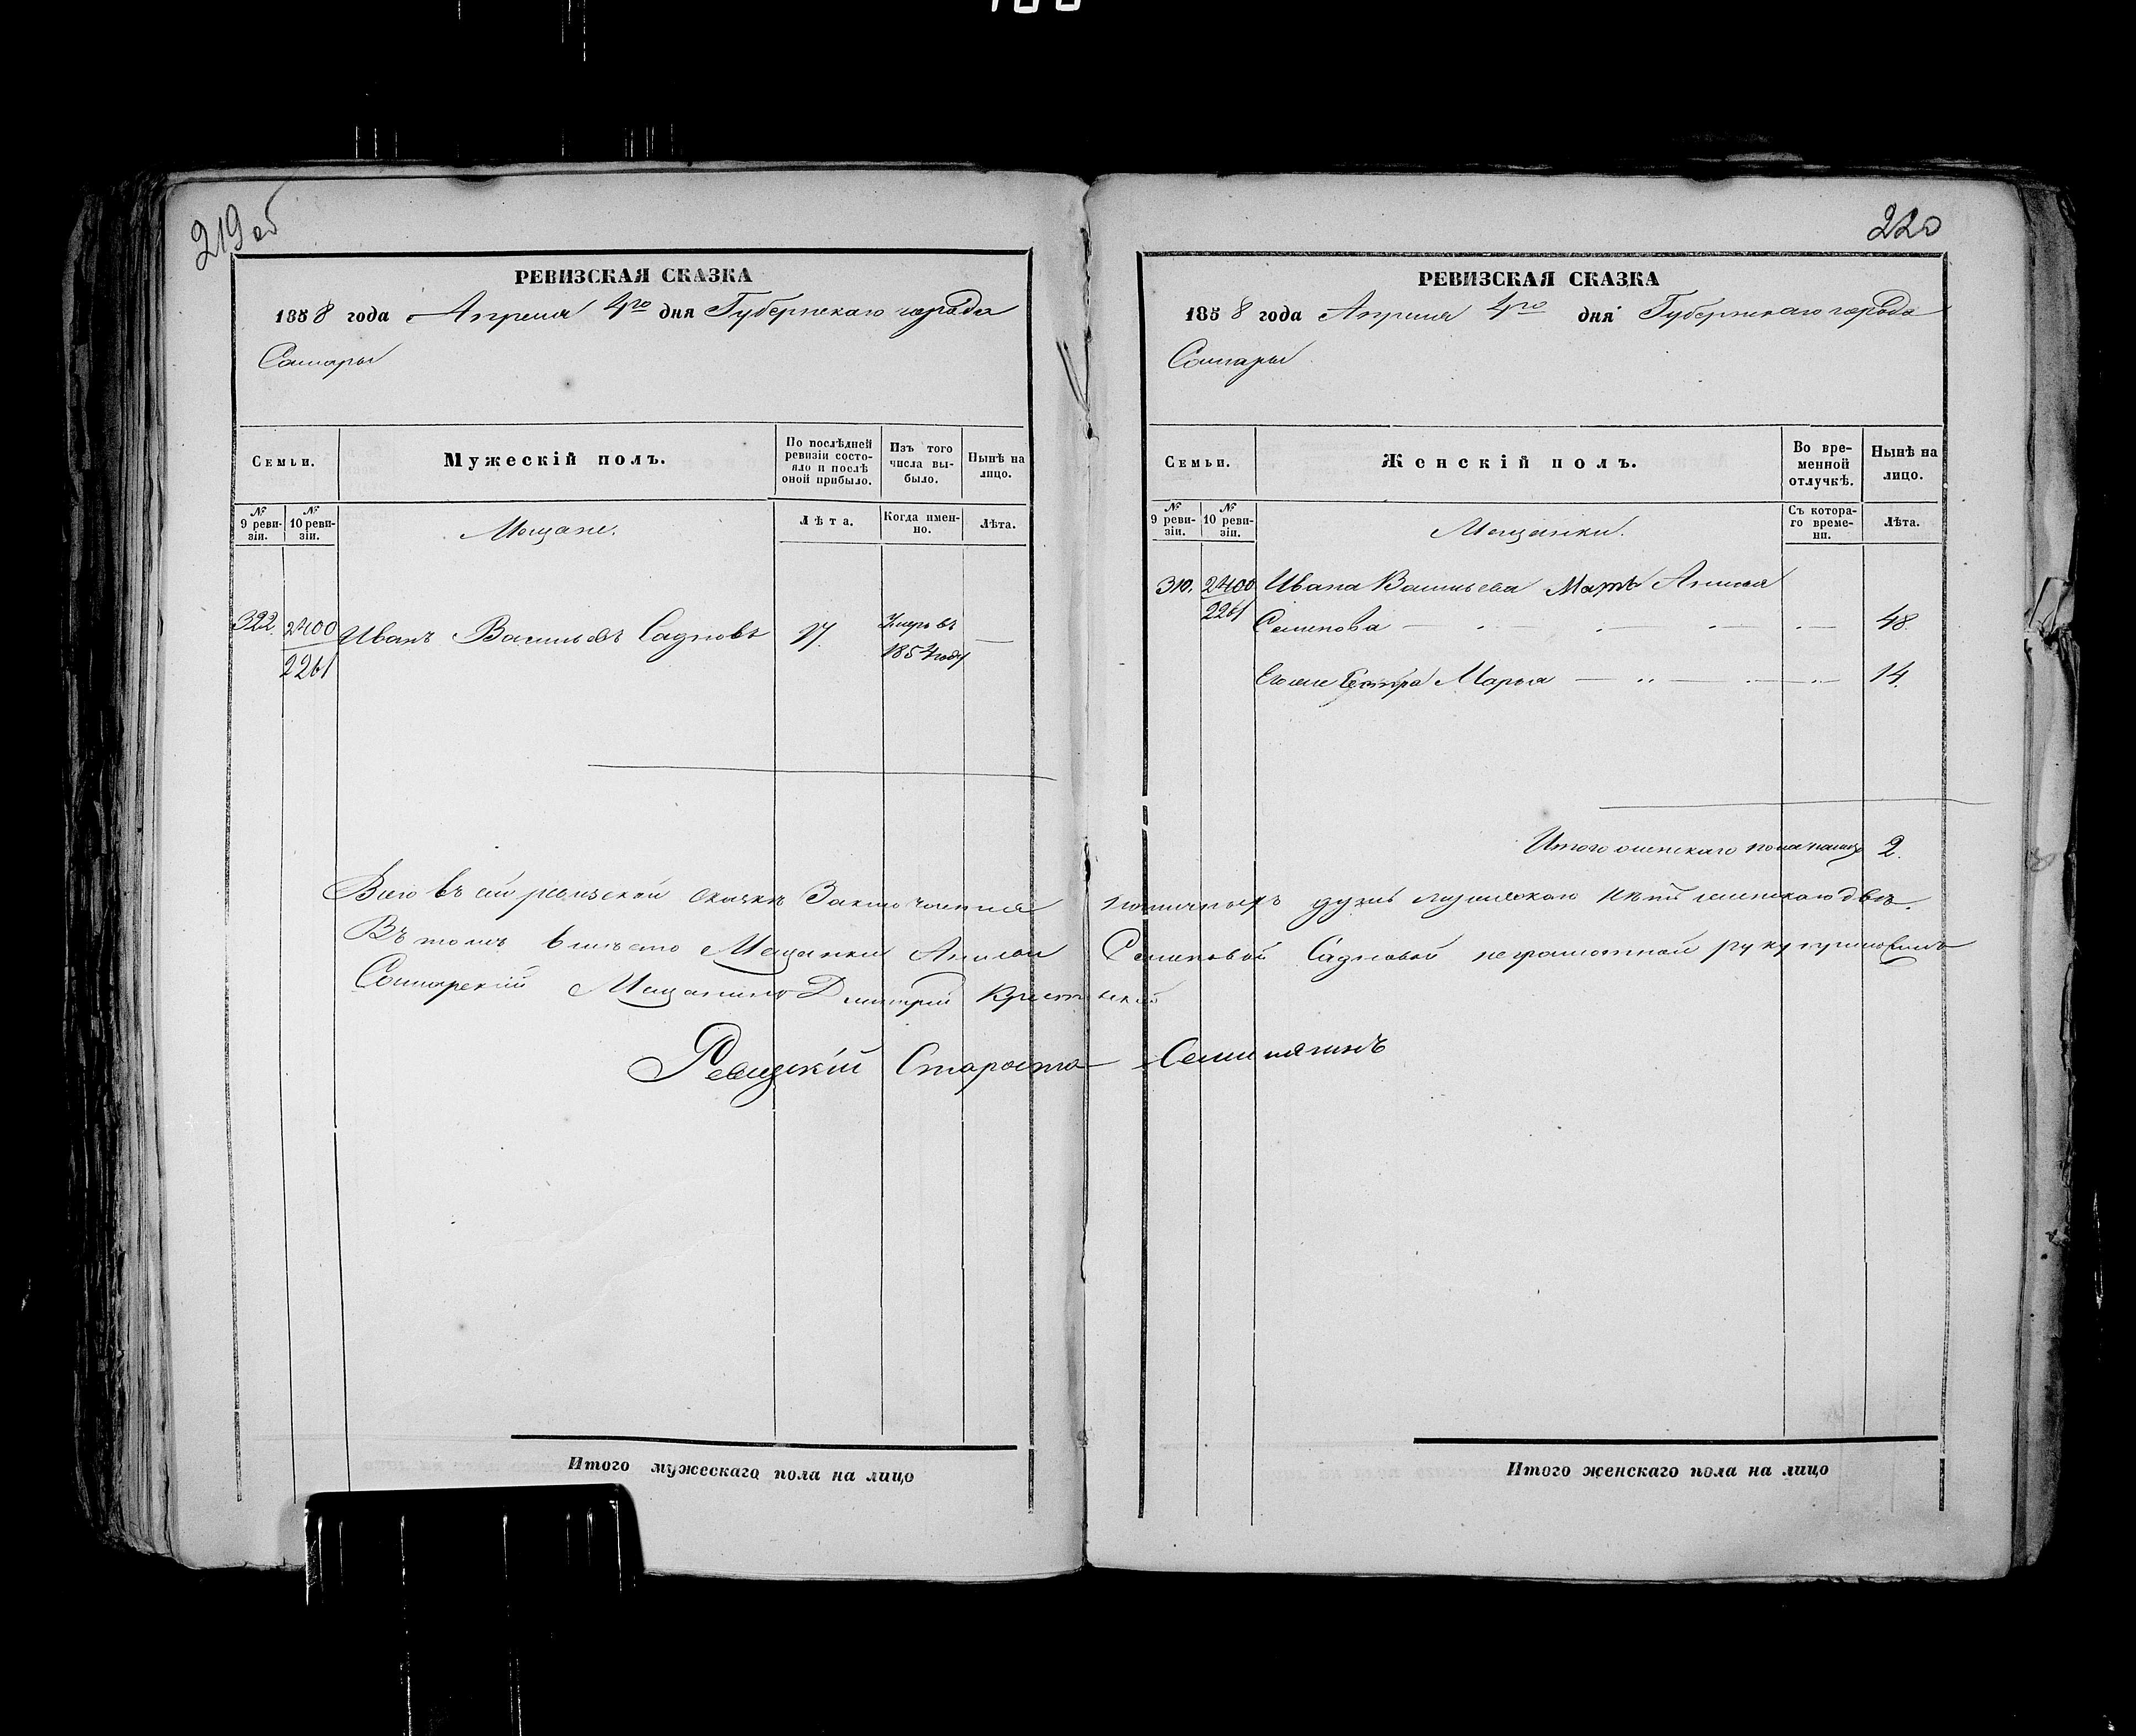 219 об
РЕВИЗСКАЯ СКАЗКА
1858 года Апреля 4го дня Губернскаго города
Самары
Семьи.
Мужескій полъ.
По послѣдней ревизіи состояло и послѣ оной прибыло.
Изъ того числа выбыло.
Нынѣ на лицо.
№ 9 ревизіи.
№ 10 ревизіи.
Мещане.
Лѣта.
Когда именно.
Лѣта.
322. 2400 Иванъ Васильевъ Садновъ 17. Умеръ въ —
2261 1854 году
220
РЕВИЗСКАЯ СКАЗКА
1858 года Апреля 4го дня Губернскаго города
Самары
Семьи.
Женскій полъ.
Во временной отлучкѣ.
Нынѣ на лицо.
№ 9 ревизіи.
№ 10 ревизіи.
Мещанки.
Съ котораго времени.
Лѣта.
310. 2400 Ивана Васильева Мать Анисья
2261 Семенова 48.
Его же Сестра Марья 14.
Итого женскаго пола налицо 2.
Всего въ сей ревизской сказкѣ Заключается наличныхъ душъ мужескаго нѣтъ женскаго двѣ.
Въ томъ вместо Мещанки Анисьи Семеновой Садновой неграмотной руку приложилъ
Самарский Мещанинъ Дмитрий
Ревизский Староста
Итого мужескаго пола на лицо
Итого женскаго пола на лицо